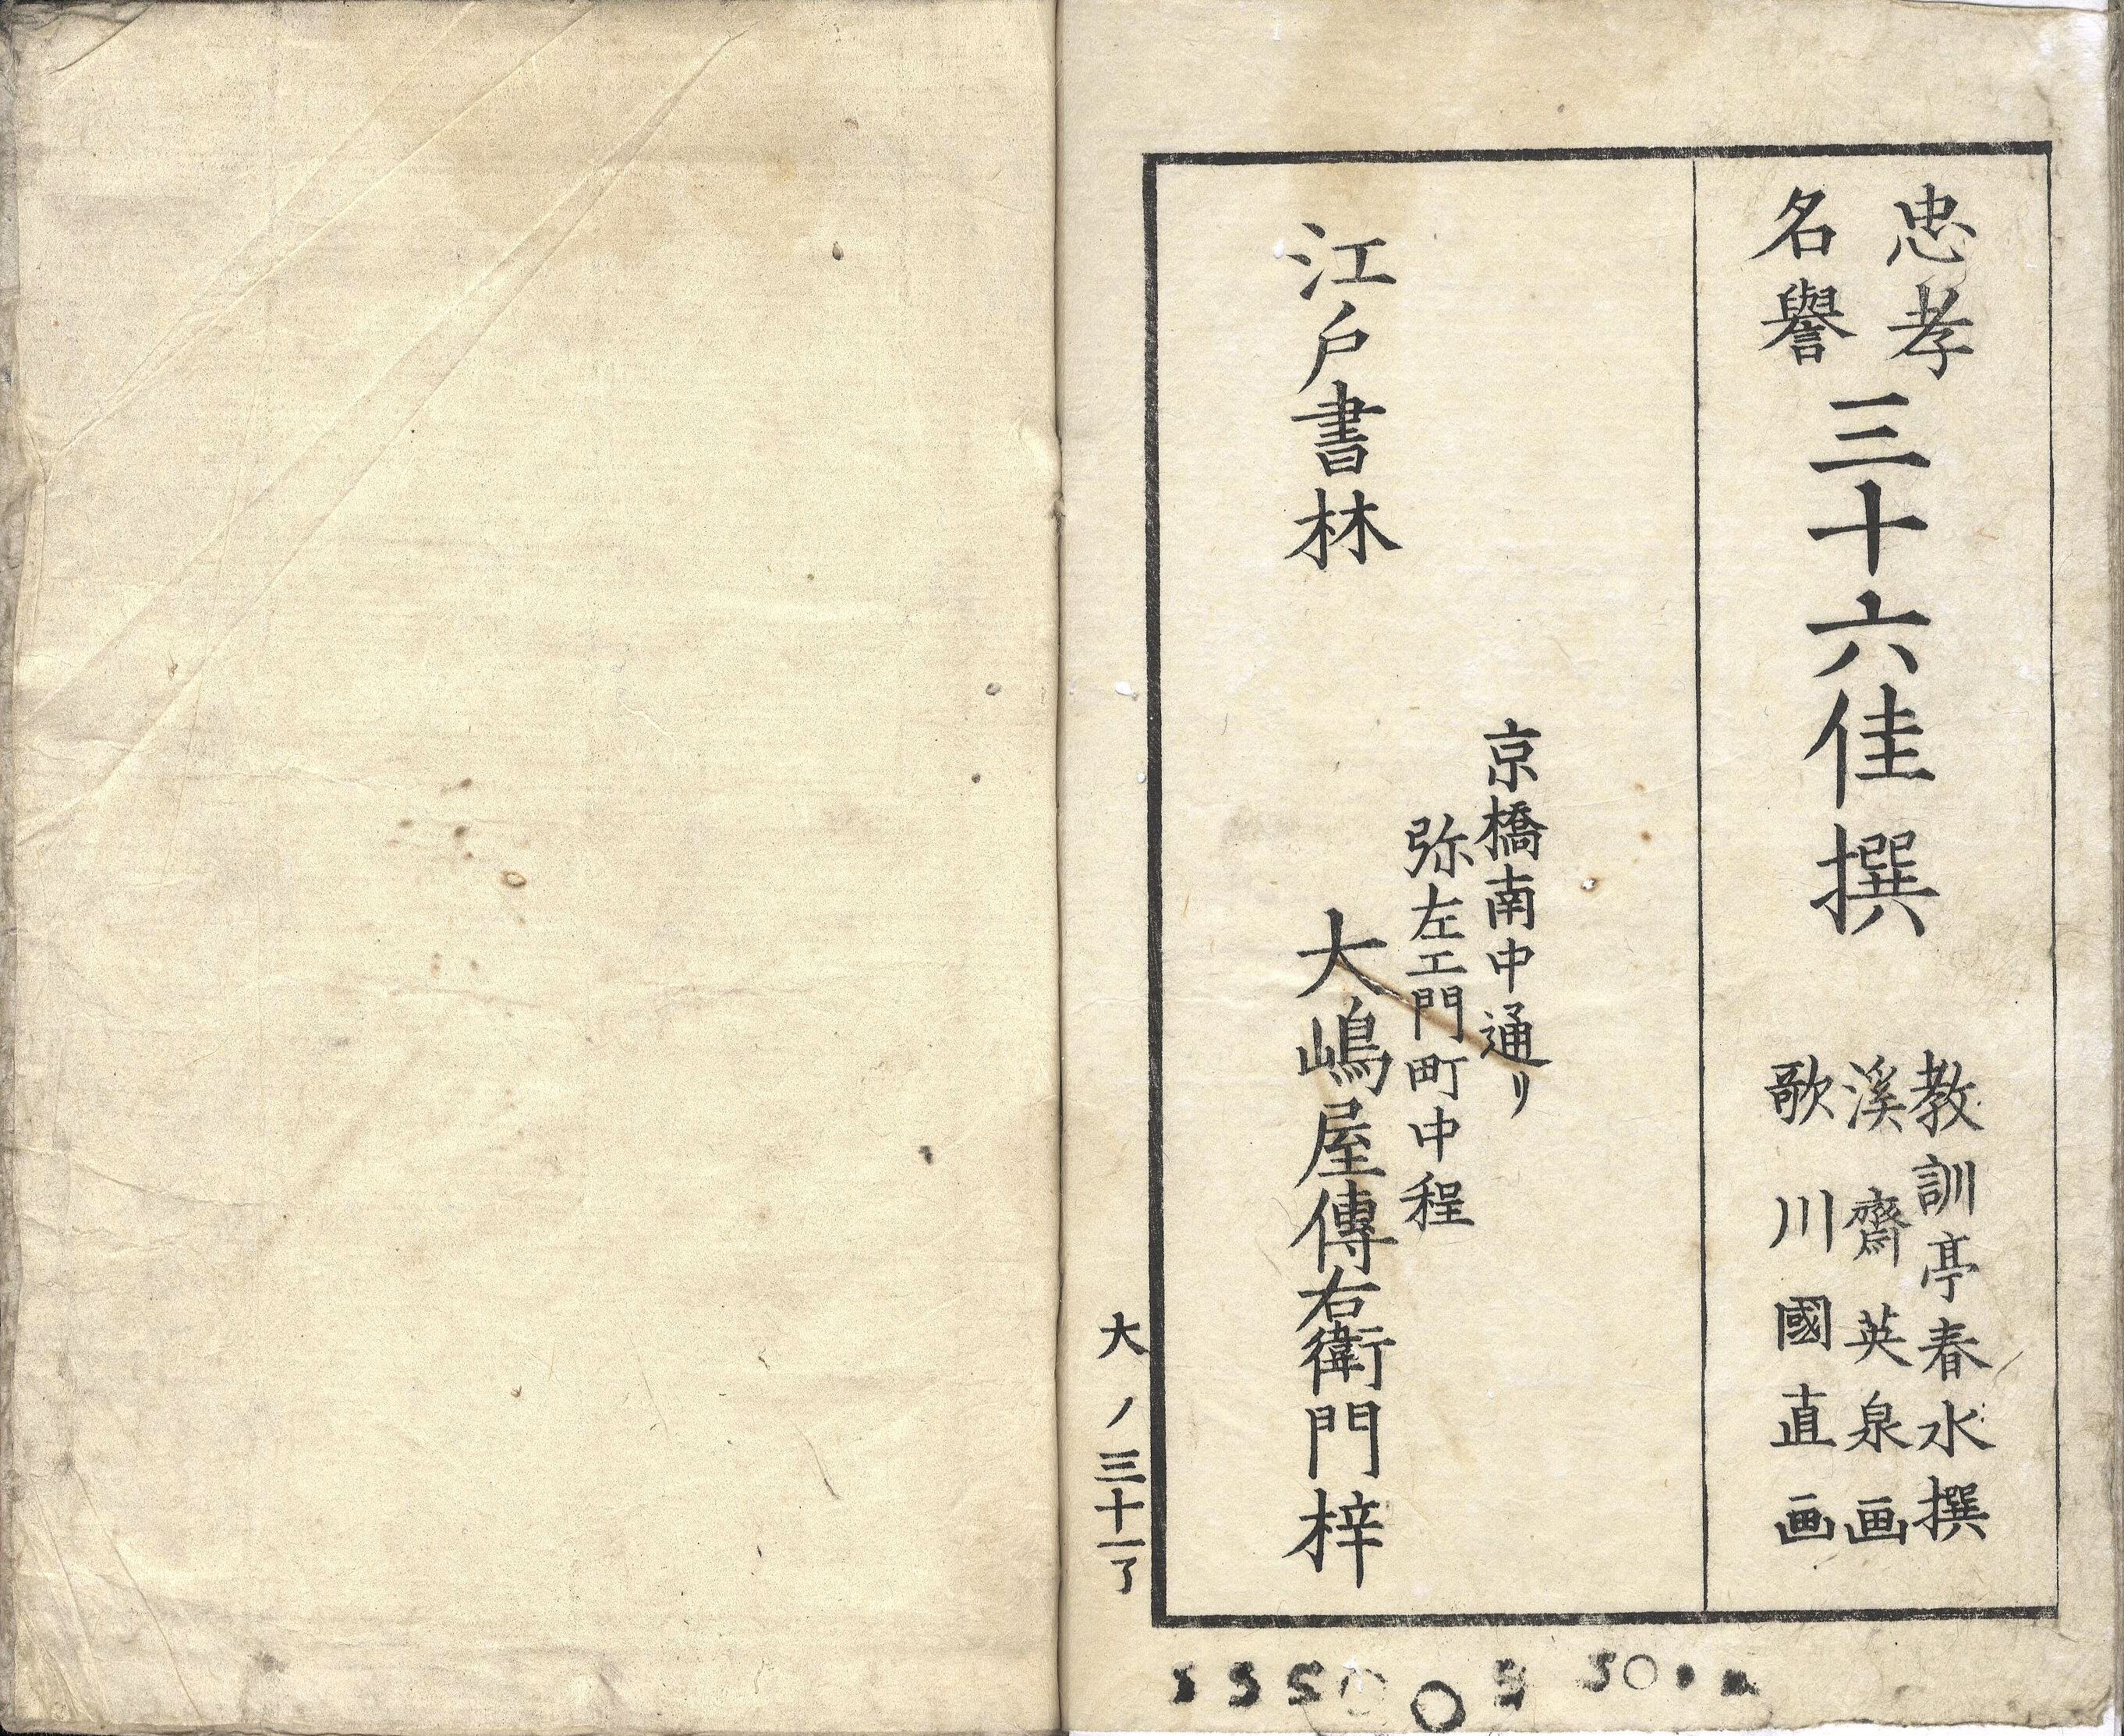 忠孝
名譽
三十六佳撰
教訓亭春水撰
溪齋英泉画
歌川國直画
京橋南中通リ
弥左エ門町中程
江戸書林
大嶋屋傳右衛門梓
大ノ三十一了